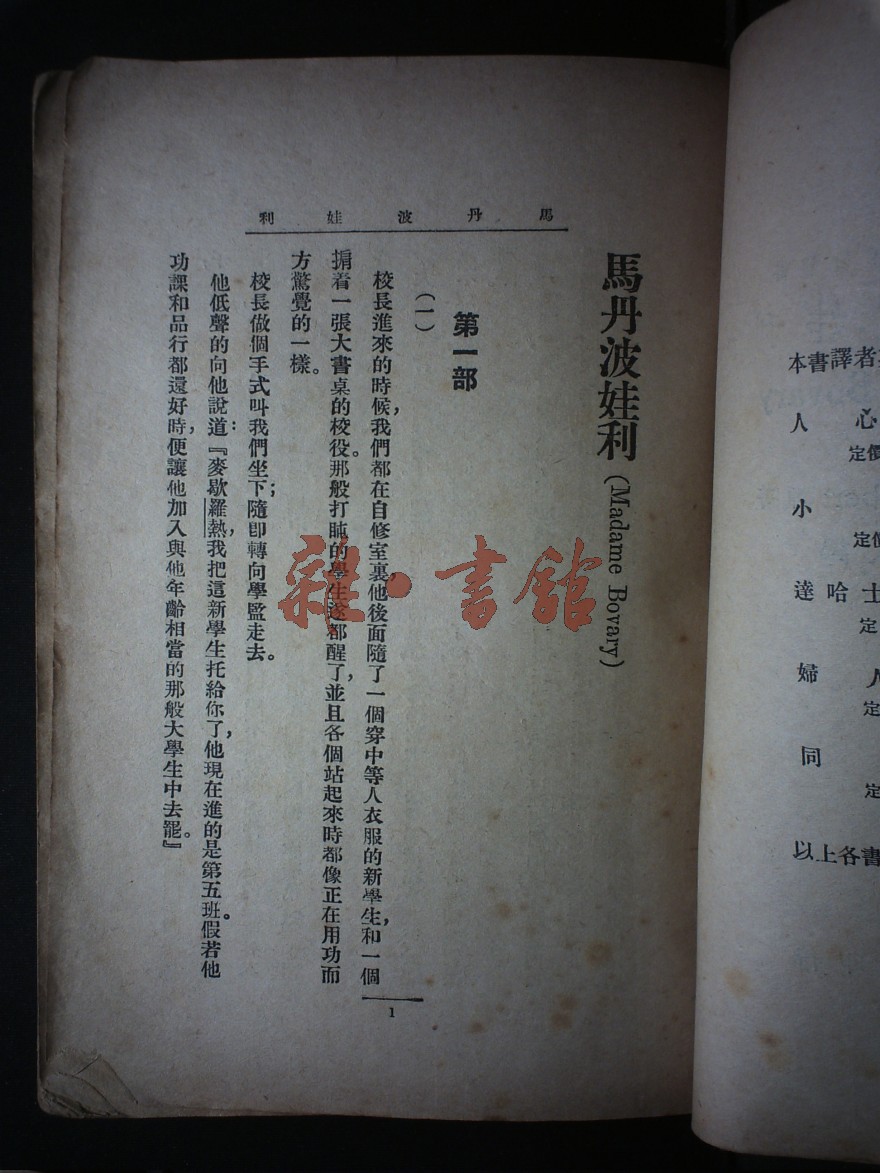 本書譯者
人心
定價
小
定價
達哈士
定
婦人
定
同
定
以上各書
馬丹波娃利
馬丹波娃利 (Madame Bovary)
第一部
(一)
校長進來的時候，我們都在自修室裏，他後面隨了一個穿中等人衣服的新學生，和一個
掮着一張大書桌的校役。那般打盹的學生遂都醒了，並且各個站起來時都像正在用功而
方驚覺的一樣。
校長做個手式叫我們坐下；隨即轉向學監走去。
他低聲的向他說道：『麥歇羅熱，我把這新學生托給你了，他現在進的是第五班。假若他
功課和品行都還好時，便讓他加入與他年齡相當的那般大學生中去罷。』
1
雜·書館